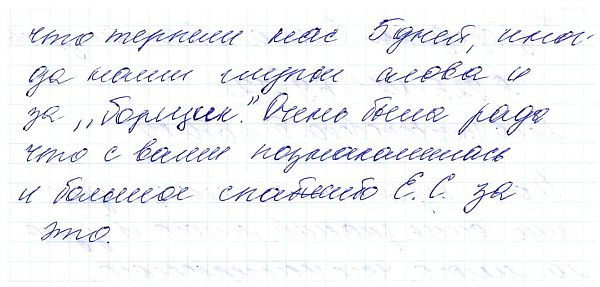 что терпели нас 5 дней, иног-
да наши глупые слова и
за „борщик." Очень была рада
что с вами познакомилась
и большое спасибо Е.С. за
это.